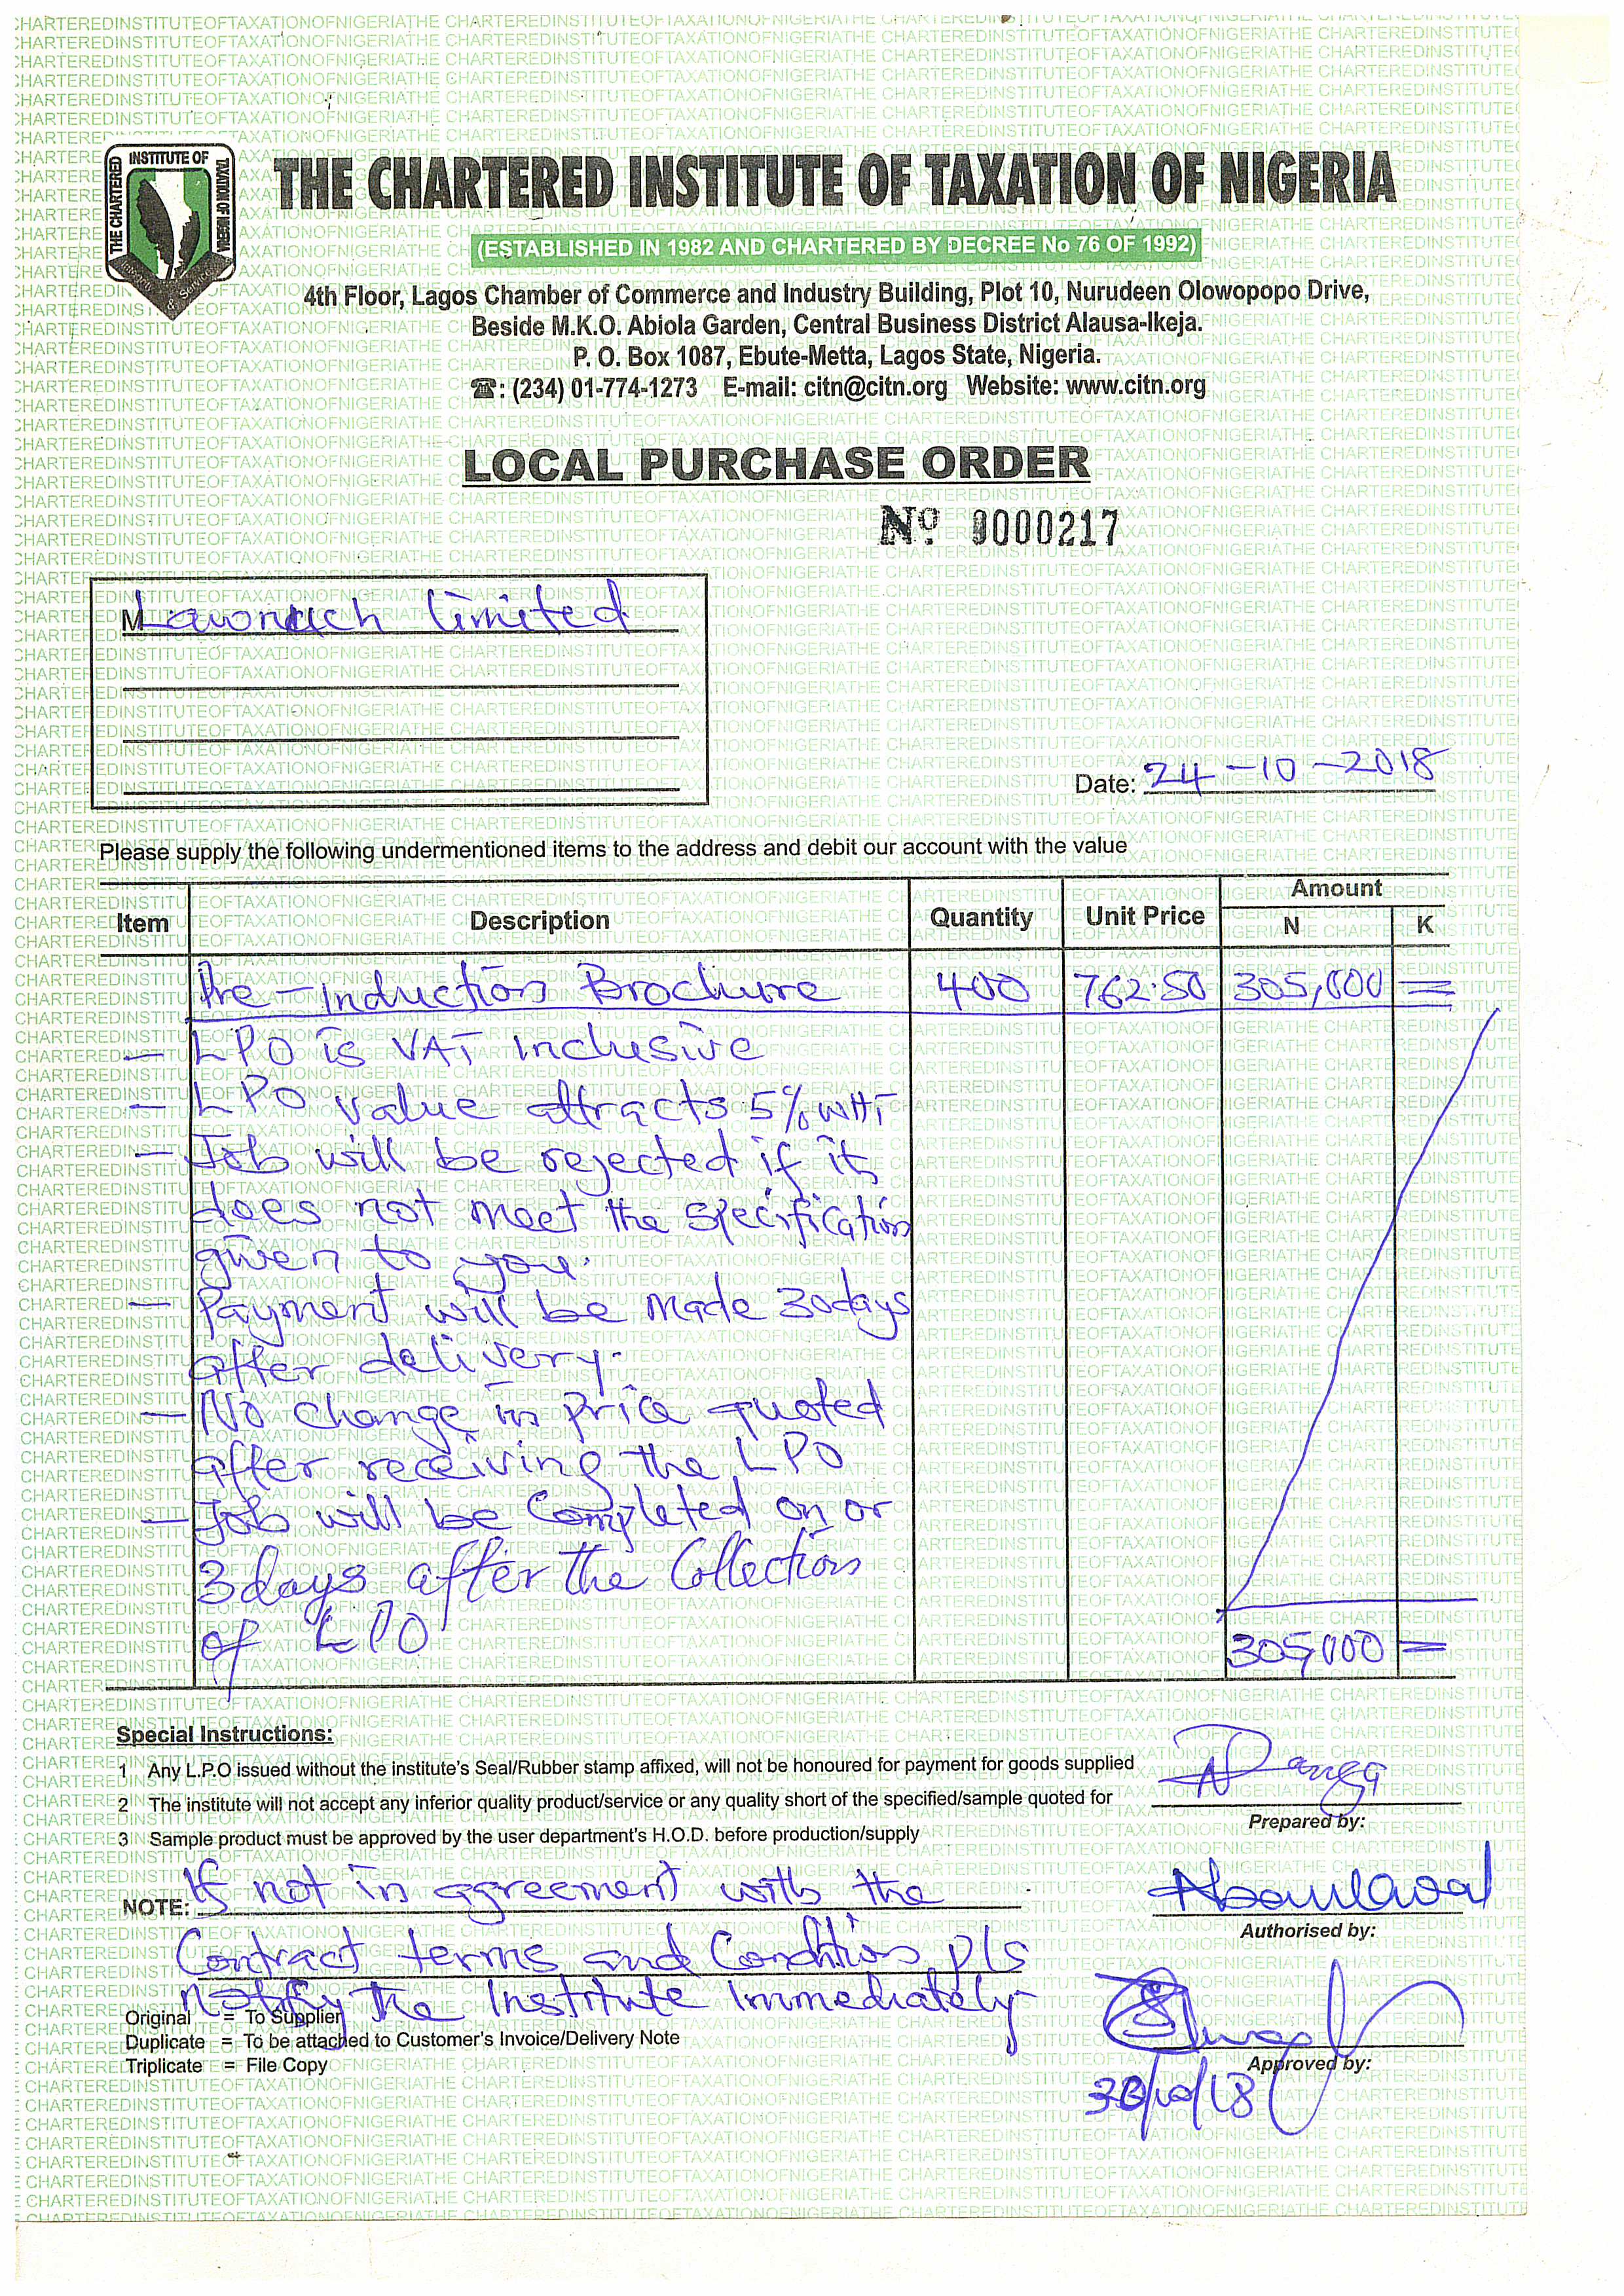 THE CHARTERED INSTITUTE OF TAXATION OF NIGERIA
INSTITUTE OF
THE CHARTERED
TAXATION OF NIGERIA
& Service
(ESTABLISHED IN 1982 AND CHARTERED BY DECREE No 76 OF 1992)
4th Floor, Lagos Chamber of Commerce and Industry Building, Plot 10, Nurudeen Olowopopo Drive,
Beside M.K.O. Abiola Garden, Central Business District Alausa-Ikeja.
P. O. Box 1087, Ebute-Metta, Lagos State, Nigeria.
☎: (234) 01-774-1273 E-mail: citn@citn.org Website: www.citn.org
LOCAL PURCHASE ORDER
Nº 0000217
M Limited
Date: 24-10-2018
Please supply the following undermentioned items to the address and debit our account with the value
Item Description Quantity Unit Price Amount
N K
Pre-Induction Brochure 400 762.50 305,000 =
- LPO is VAT inclusive
- LPO value attracts 5% WHT
- Job will be rejected if it
does not meet the specification
given to you.
- Payment will be made 30days
after delivery.
- No change in price quoted
after receiving the LPO
- Job will be Completed on or
3days after the Collection
of LPO
305,000 =
Special Instructions:
1 Any L.P.O issued without the institute's Seal/Rubber stamp affixed, will not be honoured for payment for goods supplied
2 The institute will not accept any inferior quality product/service or any quality short of the specified/sample quoted for
3 Sample product must be approved by the user department's H.O.D. before production/supply
Prepared by:
NOTE: If not in agreement with the
Contract terms and Condition pls
notify the Institute Immediately
Authorised by:
Original = To Supplier
Duplicate = To be attached to Customer's Invoice/Delivery Note
Triplicate = File Copy
Approved by:
30/10/18